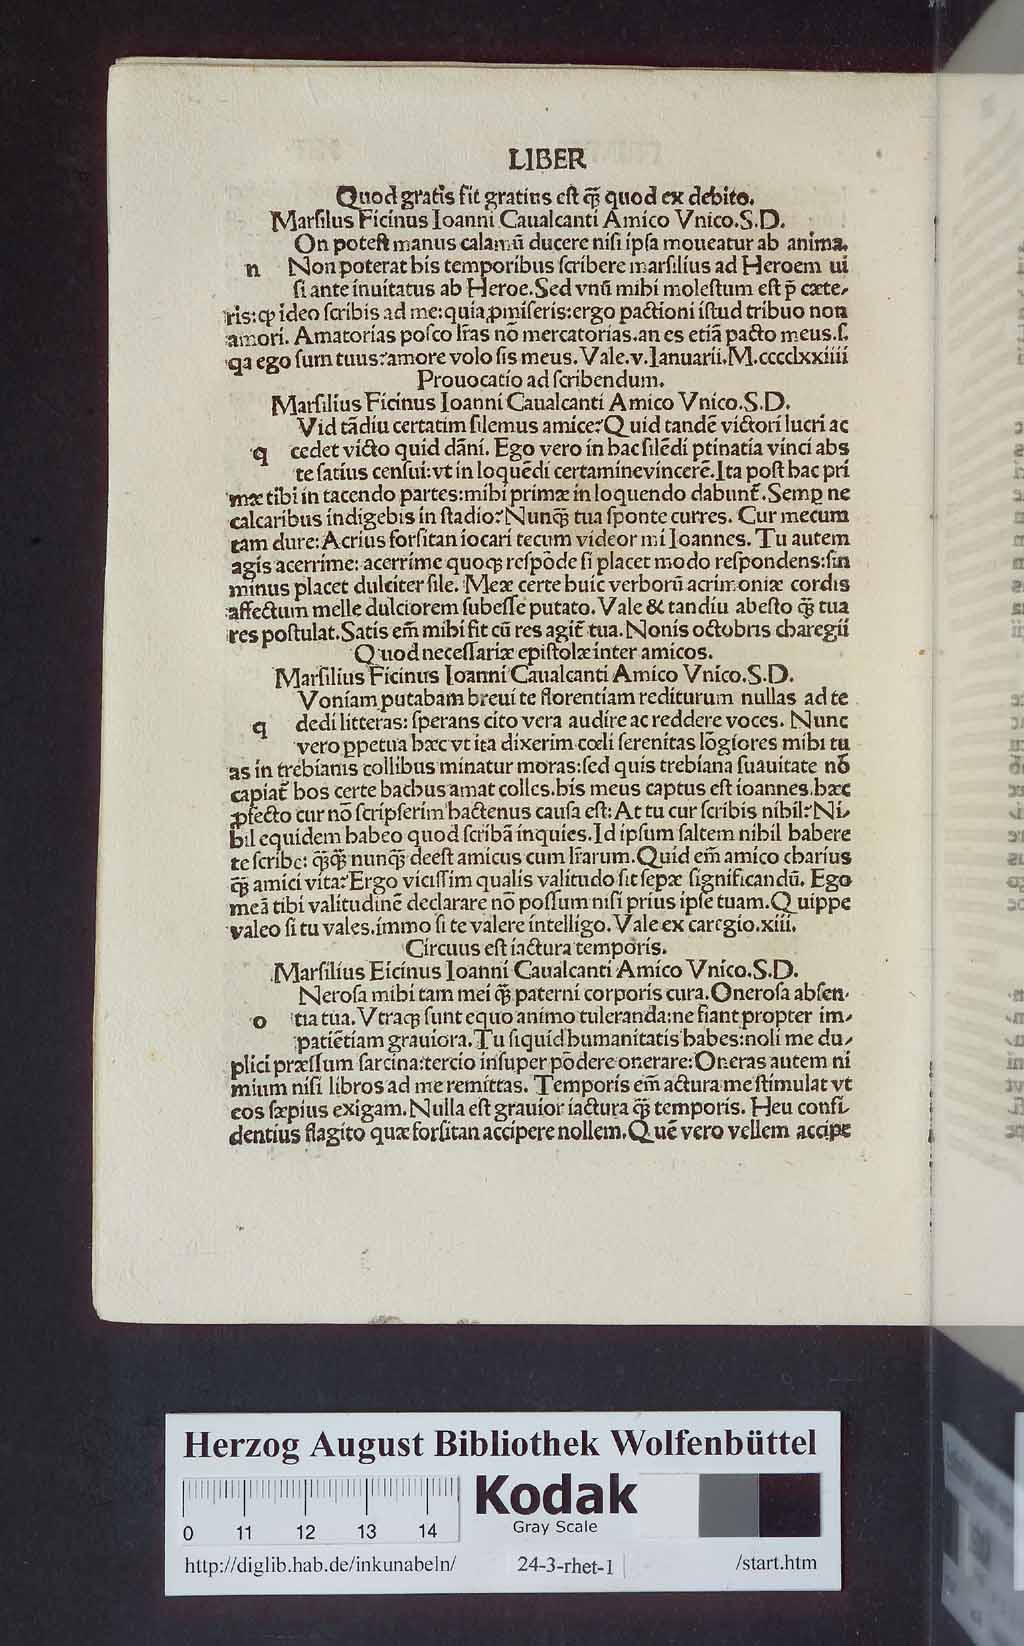 LIBER
Quod gratis fit gratius est q̃ quod ex debito.
Marsilus Ficinus Ioanni Caualcanti Amico Vnico.S.D.
On potest manus calamū ducere nisi ipsa moueatur ab anima.
n Non poterat his temporibus scribere marsilius ad Heroem ui
si ante inuitatus ab Heroe.Sed vnū mihi molestum est p̄ cæte⸗
ris:ꝙ ideo scribis ad me:quia ꝓmiseris:ergo pactioni istud tribuo non
amori. Amatorias posco lr̄as nō mercatorias.an es etiā pacto meus.s.
qa ego sum tuus:amore volo sis meus. Vale.v.Ianuarii.M.cccclxxiiii
Prouocatio ad scribendum.
Marsilius Ficinus Ioanni Caualcanti Amico Vnico.S.D.
Vid tādiu certatim silemus amice?Quid tandē victori lucri ac
q cedet victo quid dāni. Ego vero in hac silēdi ptinatia vinci abs
te satius censui:vt in loquēdi certamine vincerē.Ita post hac pri
mæ tibi in tacendo partes:mihi primæ in loquendo dabunt̄.Semꝑ ne
calcaribus indigebis in stadio?Nunq̃ tua sponte curres. Cur mecum
tam dure:Acrius forsitan iocari tecum videor mi Ioannes. Tu autem
agis acerrime: acerrime quoqꝫ respōde si placet modo respondens:sin
minus placet dulciter sile. Meæ certe huic verborū acrimoniæ cordis
affectum melle dulciorem subesse putato. Vale & tandiu abesto q̃ tua
res postulat.Satis em̄ mihi fit cū res agit̄ tua.Nonis octobris charegii
Quod necessariæ epistolæ inter amicos.
Marsilius Ficinus Ioanni Caualcanti Amico Vnico.S.D.
Voniam putabam breui te florentiam rediturum nullas ad te
q dedi litteras: sperans cito vera audire ac reddere voces. Nunc
vero ꝑpetua hæc vt ita dixerim cœli serenitas lōgiores mihi tu
as in trebianis collibus minatur moras:sed quis trebiana suauitate nō
capiat̄ hos certe bachus amat colles.his meus captus est ioannes.hæc
ꝓfecto cur nō scripserim hactenus causa est: At tu cur scribis nihil?Ni⸗
hil equidem habeo quod scribā inquies.Id ipsum saltem nihil habere
te scribe: q̃q̃ nunq̃ deest amicus cum lr̄arum.Quid em̄ amico charius
q̃ amici vita?Ergo vicissim qualis valitudo sit sepæ significandū. Ego
meā tibi valitudinē declarare nō possum nisi prius ipse tuam.Quippe
valeo si tu vales.immo si te valere intelligo. Vale ex caregio.xiii.
Circuus est iactura temporis.
Marsilius Eicinus Ioanni Caualcanti Amico Vnico.S.D.
Nerosa mihi tam mei q̃ paterni corporis cura.Onerosa absen⸗
o tia tua. Vtraqꝫ sunt equo animo tuleranda:ne fiant propter im⸗
patiētiam grauiora.Tu siquid humanitatis habes:noli me du⸗
plici præssum sarcina:tercio insuper pōdere onerare:Oneras autem ni
mium nisi libros ad me remittas. Temporis em̄ actura me stimulat vt
eos sæpius exigam.Nulla est grauior iactura q̃ temporis. Heu confi⸗
dentius flagito quæ forsitan accipere nollem.Quē vero vellem accipe
Herzog August Bibliothek Wolfenbüttel
0 11 12 13 14
Kodak
Gray Scale
http://diglib.hab.de/inkunabeln/ 24-3-rhet-1 /start.htm